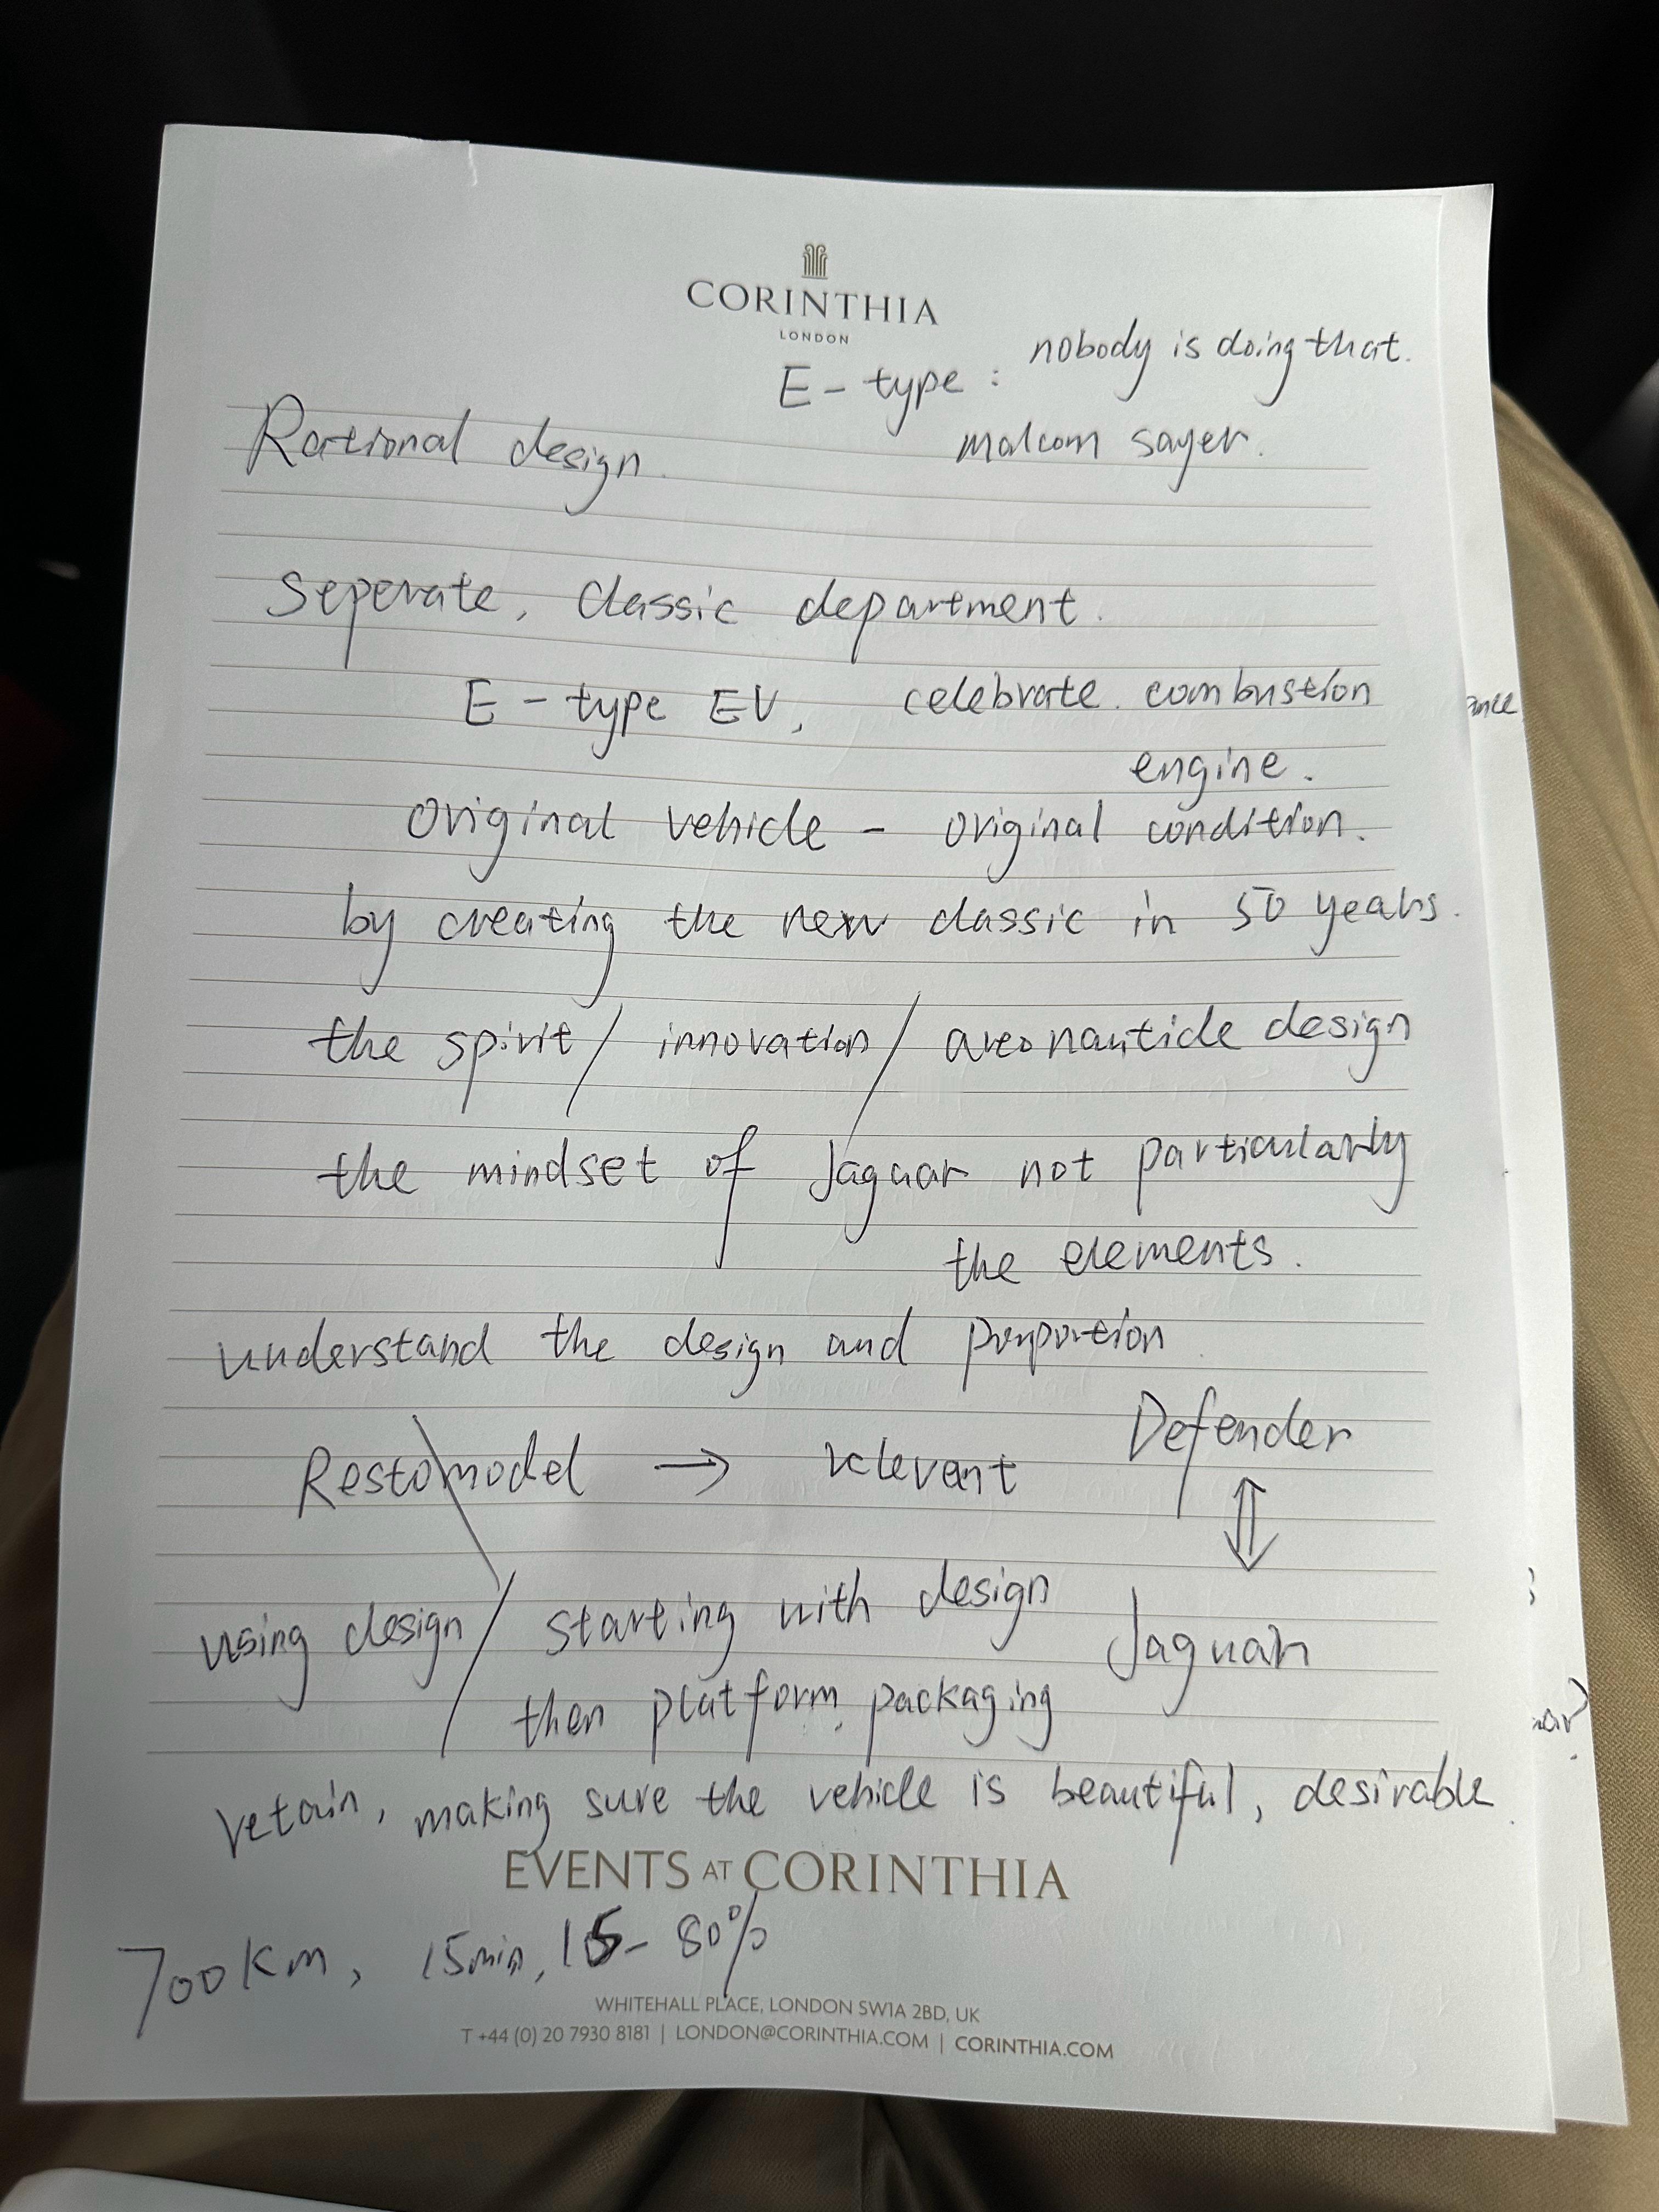 CORINTHIA
LONDON
E-type : nobody is doing that.
Rational design.
malcom sayer.
Seperate, classic department.
E-type EV, celebrate combustion
engine.
Original vehicle - original condition.
by creating the new classic in 50 years.
the spirit / innovation / areonauticle design
the mindset of Jaguar not particularly
the elements.
understand the design and
Restomodel → relevent
Defender
⇕
Jaguar
using design / starting with design
then platform, packaging
retain, making sure the vehicle is beautiful, desirable.
EVENTS AT CORINTHIA
700km, 15min, 15-80%
WHITEHALL PLACE, LONDON SW1A 2BD, UK
T +44 (0) 20 7930 8181 | LONDON@CORINTHIA.COM | CORINTHIA.COM